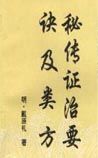 秘传证治要
诀及类方
明·戴原礼 著